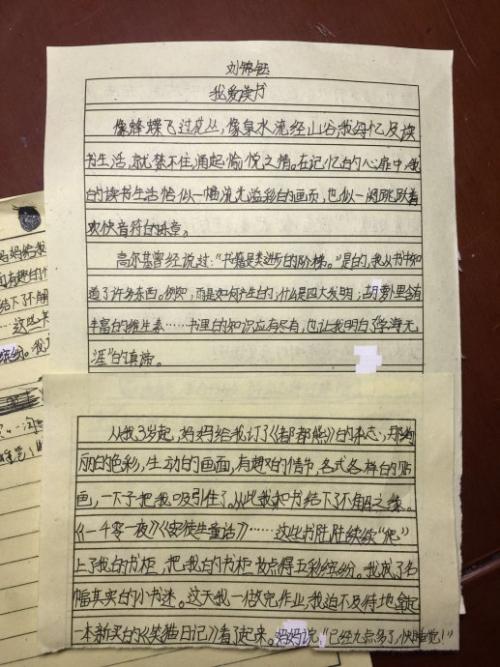 刘锦钰
我爱读书
像蜂蝶飞过花丛,像泉水流经山谷,我每忆及读
书生活,就禁不住涌起愉悦之情。在记忆的心扉中,我
的读书生活恰似一幅流光溢彩的画页,也似一阕跳跃着
欢快音符的乐章。
高尔基曾经说过:“书籍是类进步的阶梯。”是的,我从书中知
道了许多东西。例如,雨是如何产生的,什么是四大发明;胡萝卜里含有
丰富的维生素……书里的知识应有尽有,也让我明白了“学海无
涯”的真谛。
从我3岁起,妈妈给我订了《都都熊》的杂志,那绚
丽的色彩,生动的画面,有趣的情节,各式各样的贴
画,一下子把我吸引住了。从此我和书结下了不解之缘。
《一千零一夜》《安徒生童话》……这些书陆陆续续“爬”
上了我的书柜,把我的书柜妆点得五彩缤纷。我成了名
幅其实的小书迷。这天我一做完作业,我迫不及待地拿起
一本新买的《笑猫日记》看了起来。妈妈说:“已经九点多了,快睡觉!”